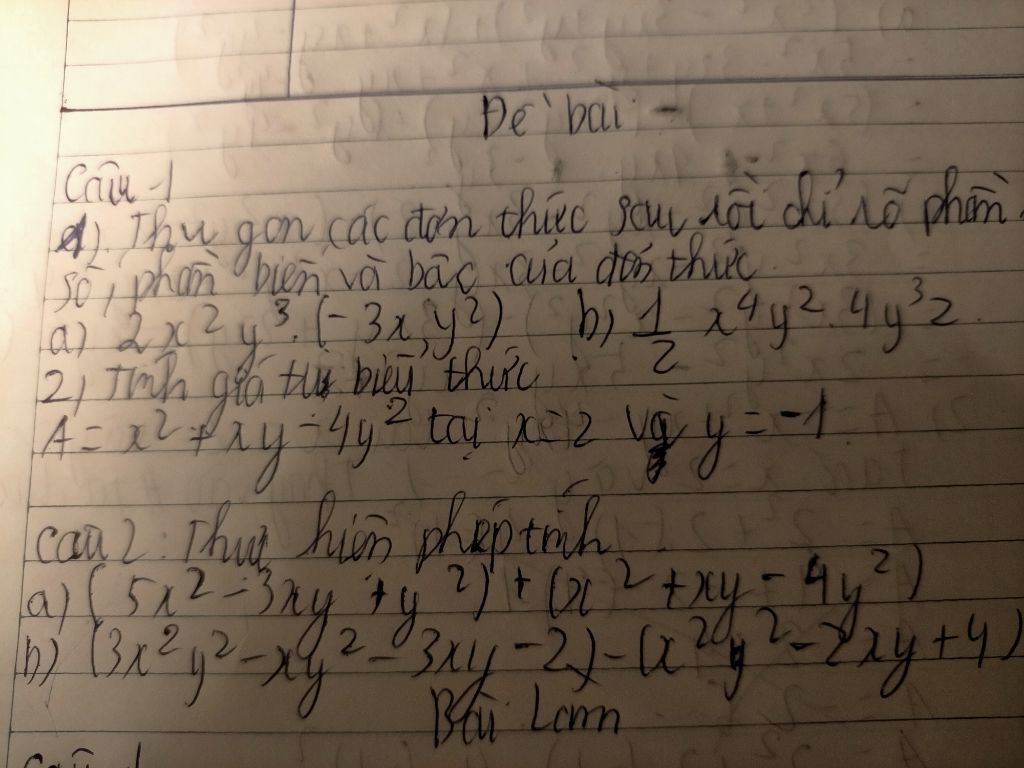 Đề bài
Câu 1
1) Thu gọn các đơn thức sau rồi chỉ rõ phần
số, phần biến và bậc của đơn thức
a) 2x²y³.(-3x,y²) b) 1/2 x⁴y².4y³z.
2) Tính giá trị biểu thức
A = x² + xy - 4y² tại x = 2 và y = -1
Câu 2: Thực hiện phép tính
a) (5x² - 3xy + y²) + (x² + xy - 4y²)
b) (3x²y² - xy² - 3xy - 2) - (x²y² - 2xy + 4)
Bài Làm
Câu 1